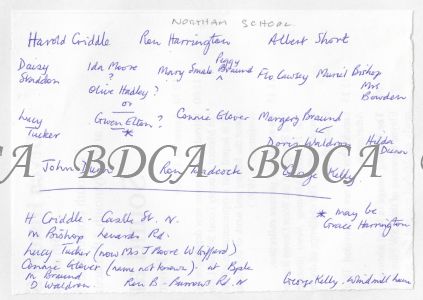 NORTHAM SCHOOL
Harold Criddle Ron Harrington Albert Short
Peggy
Daisy Ida Moore Mary Smale Braund Flo Lawsey Muriel Bishop
? Mrs
Olive Hadley? Bowden
or
Lucy Gwen Elton? Connie Glover Margery Braund
Tucker * Doris Waldron Hilda
John Dunn George Kelly
BDCA BDCA BDCA
H Criddle - Castle St. N. * may be
M Bishop Rd. Grace Harrington
Lucy Tucker (now Mrs J Moore W Gifford)
Connie Glover (name not known) - at
M Braund
D Waldron. Ron B - Burrows Rd. N George Kelly. Windmill Lane